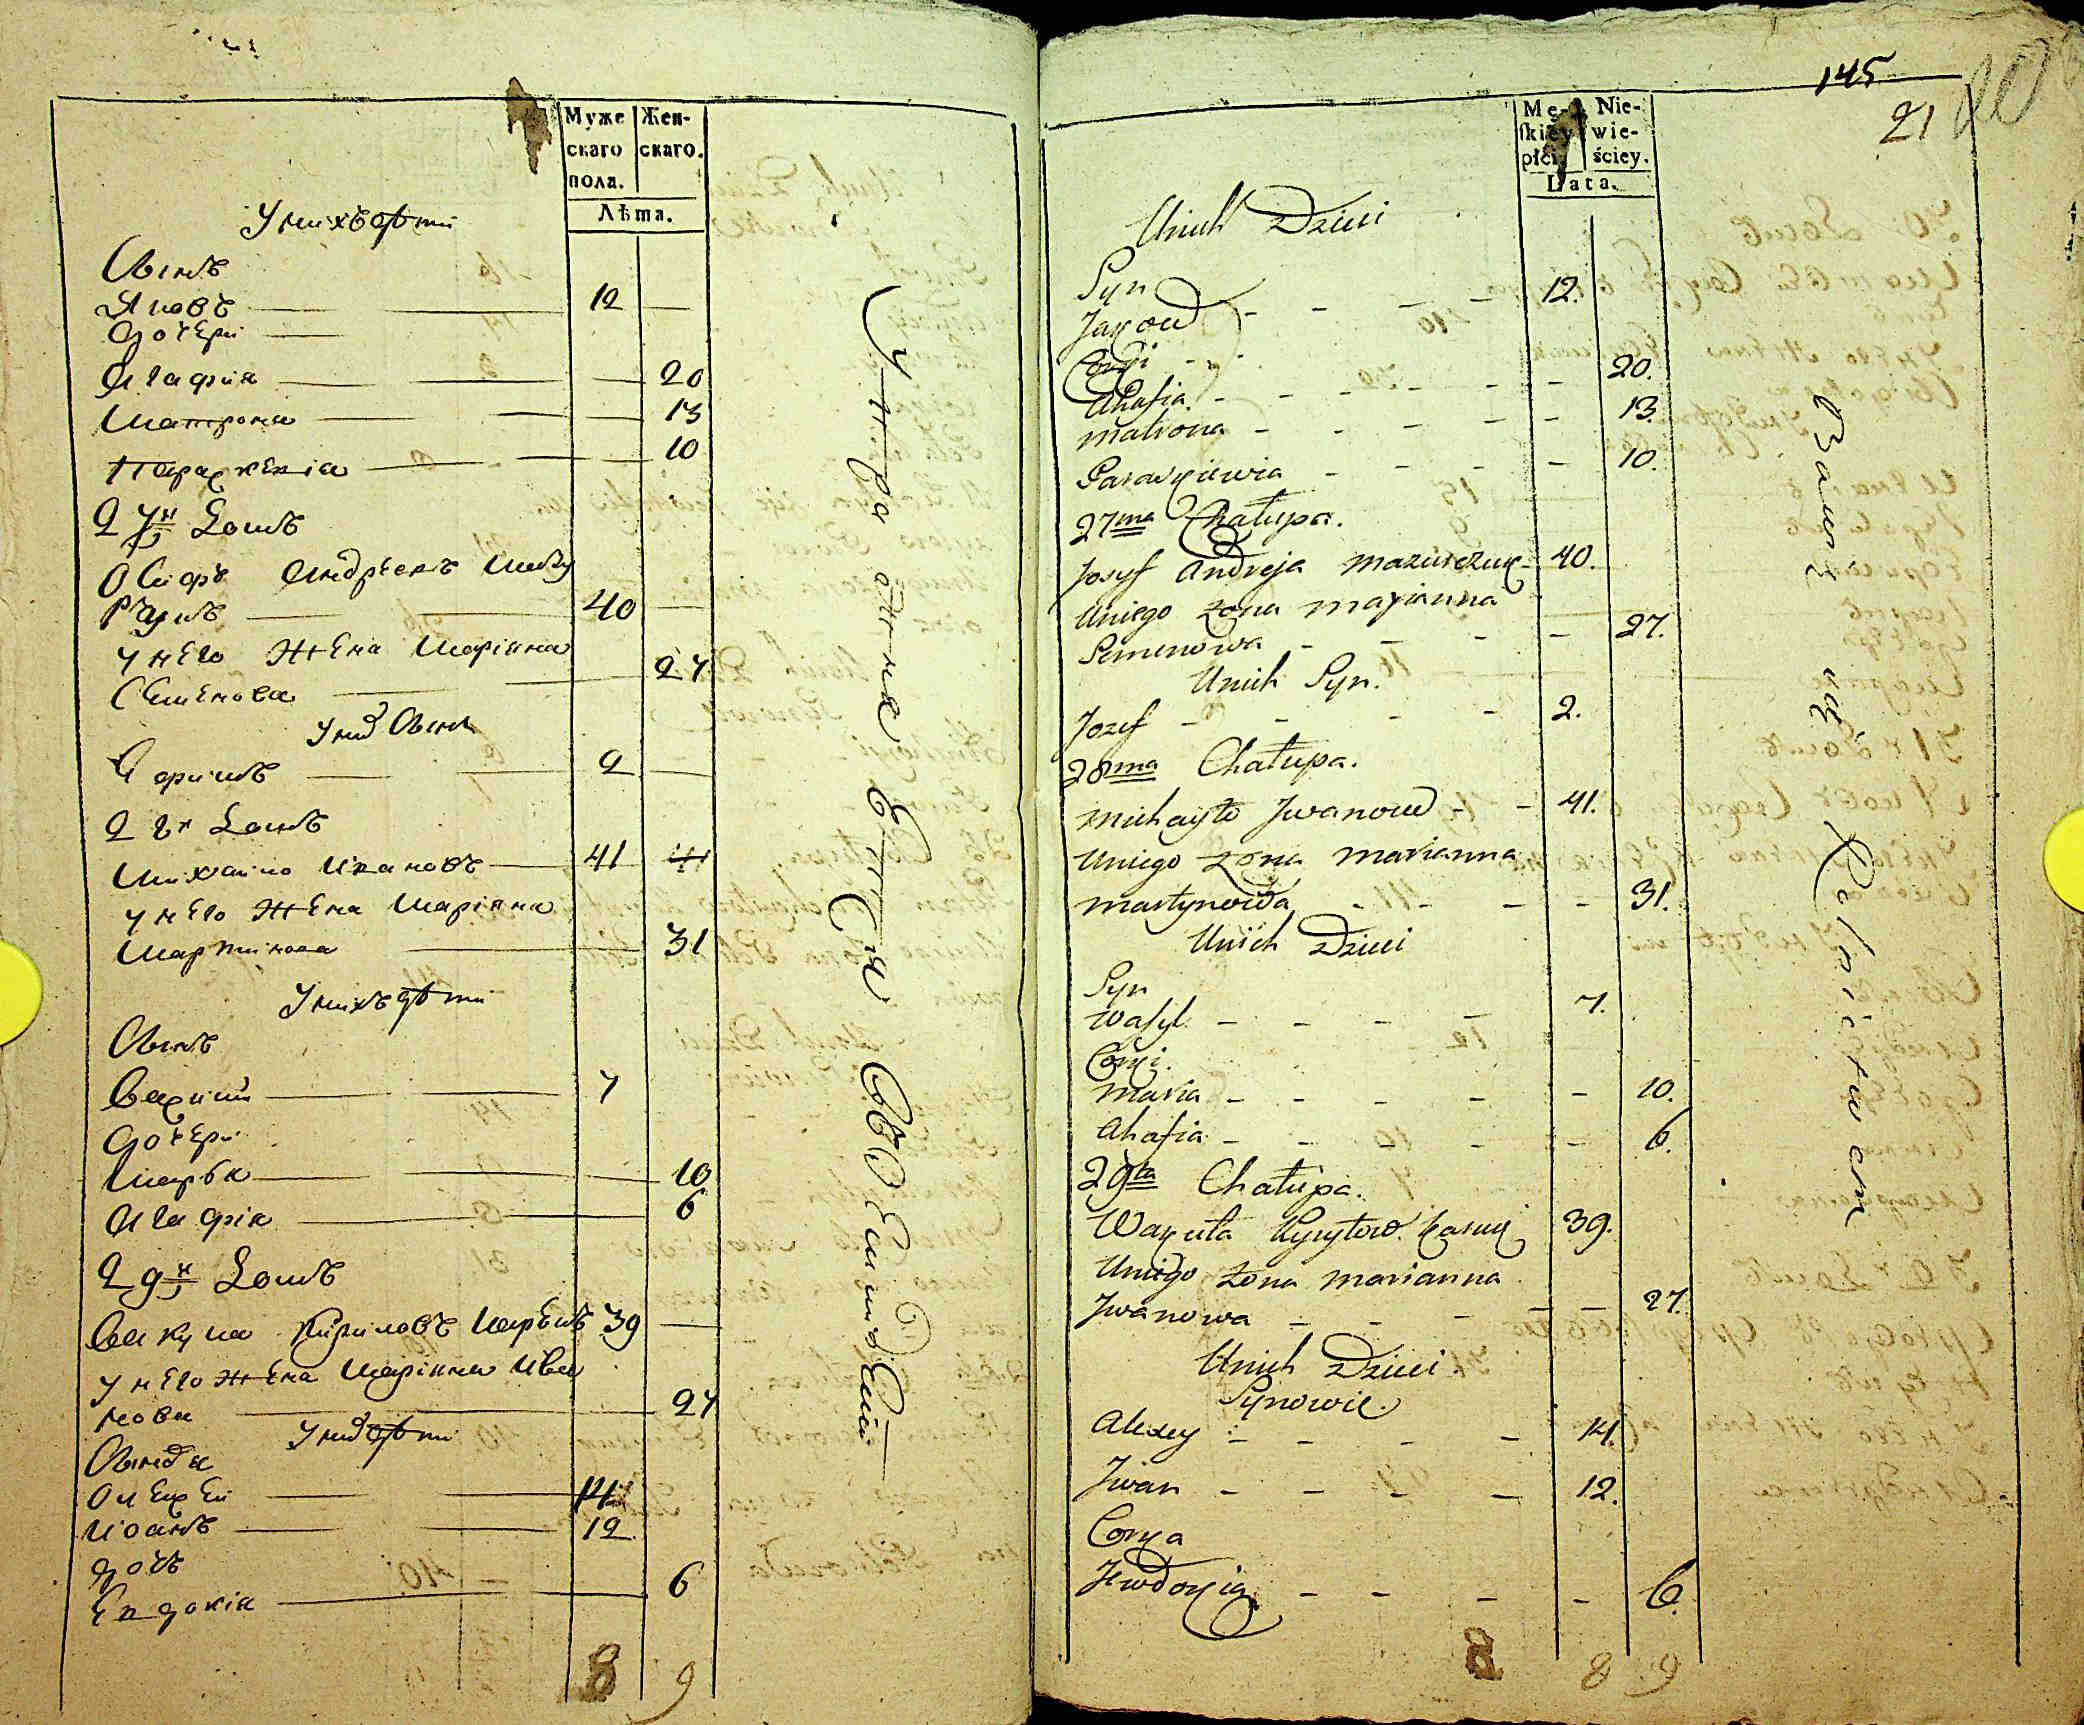 Муже
скаго
пола.
Жен-
скаго.
Лѣта.
У нихъ дѣти
Сынъ
Яковъ 12
Дочери
Агафия 20
Матрона 13
Параскевiа 10
27я Хата
Осифъ Андреевъ Мазу
рчукъ 40
У него жена Марiянна
Семенова 27
У нихъ Сынъ
2
28я
Михайло Ивановъ 41
У него жена Марiянна
Мартинова 31
У нихъ дѣти
Сынъ
Василий 7
Дочери
Марья 10
Агафiя 6
29я
Вакула Кириловъ 39
У него жена Марiянна Ива
нова 27
У нихъ дѣти
Сыновя
Олексей 14
Иоанъ 12
дочъ
Евдокiя 6
8 9
145
21
Mę-
skiéy
płci
Nie-
wie-
ściey.
Lata.
Unich Dzieci
Syn
Jakow 12.
Corki
Ahafia 20.
Matrona 13.
Paraskiewia 10.
27ma Chałupa.
Josyf Andreja Mazurczuk 40.
Uniego żona Maryanna
Semenowa 27.
Unich Syn.
Jozef 2.
28ma Chałupa.
Michayło Jwanow 41.
Uniego żona Marianna
Martynowa 31.
Unich Dzieci
Syn
Wasyl 7.
Corki.
Maria 10.
Ahafia 6.
29ta Chałupa.
Wakuła Kyryłow 39.
Uniego żona Marianna
Jwanowa 27.
Unich Dzieci
Synowie
Alexey 14.
Jwan 12.
Corka
Jewdokia 6.
8 8 9